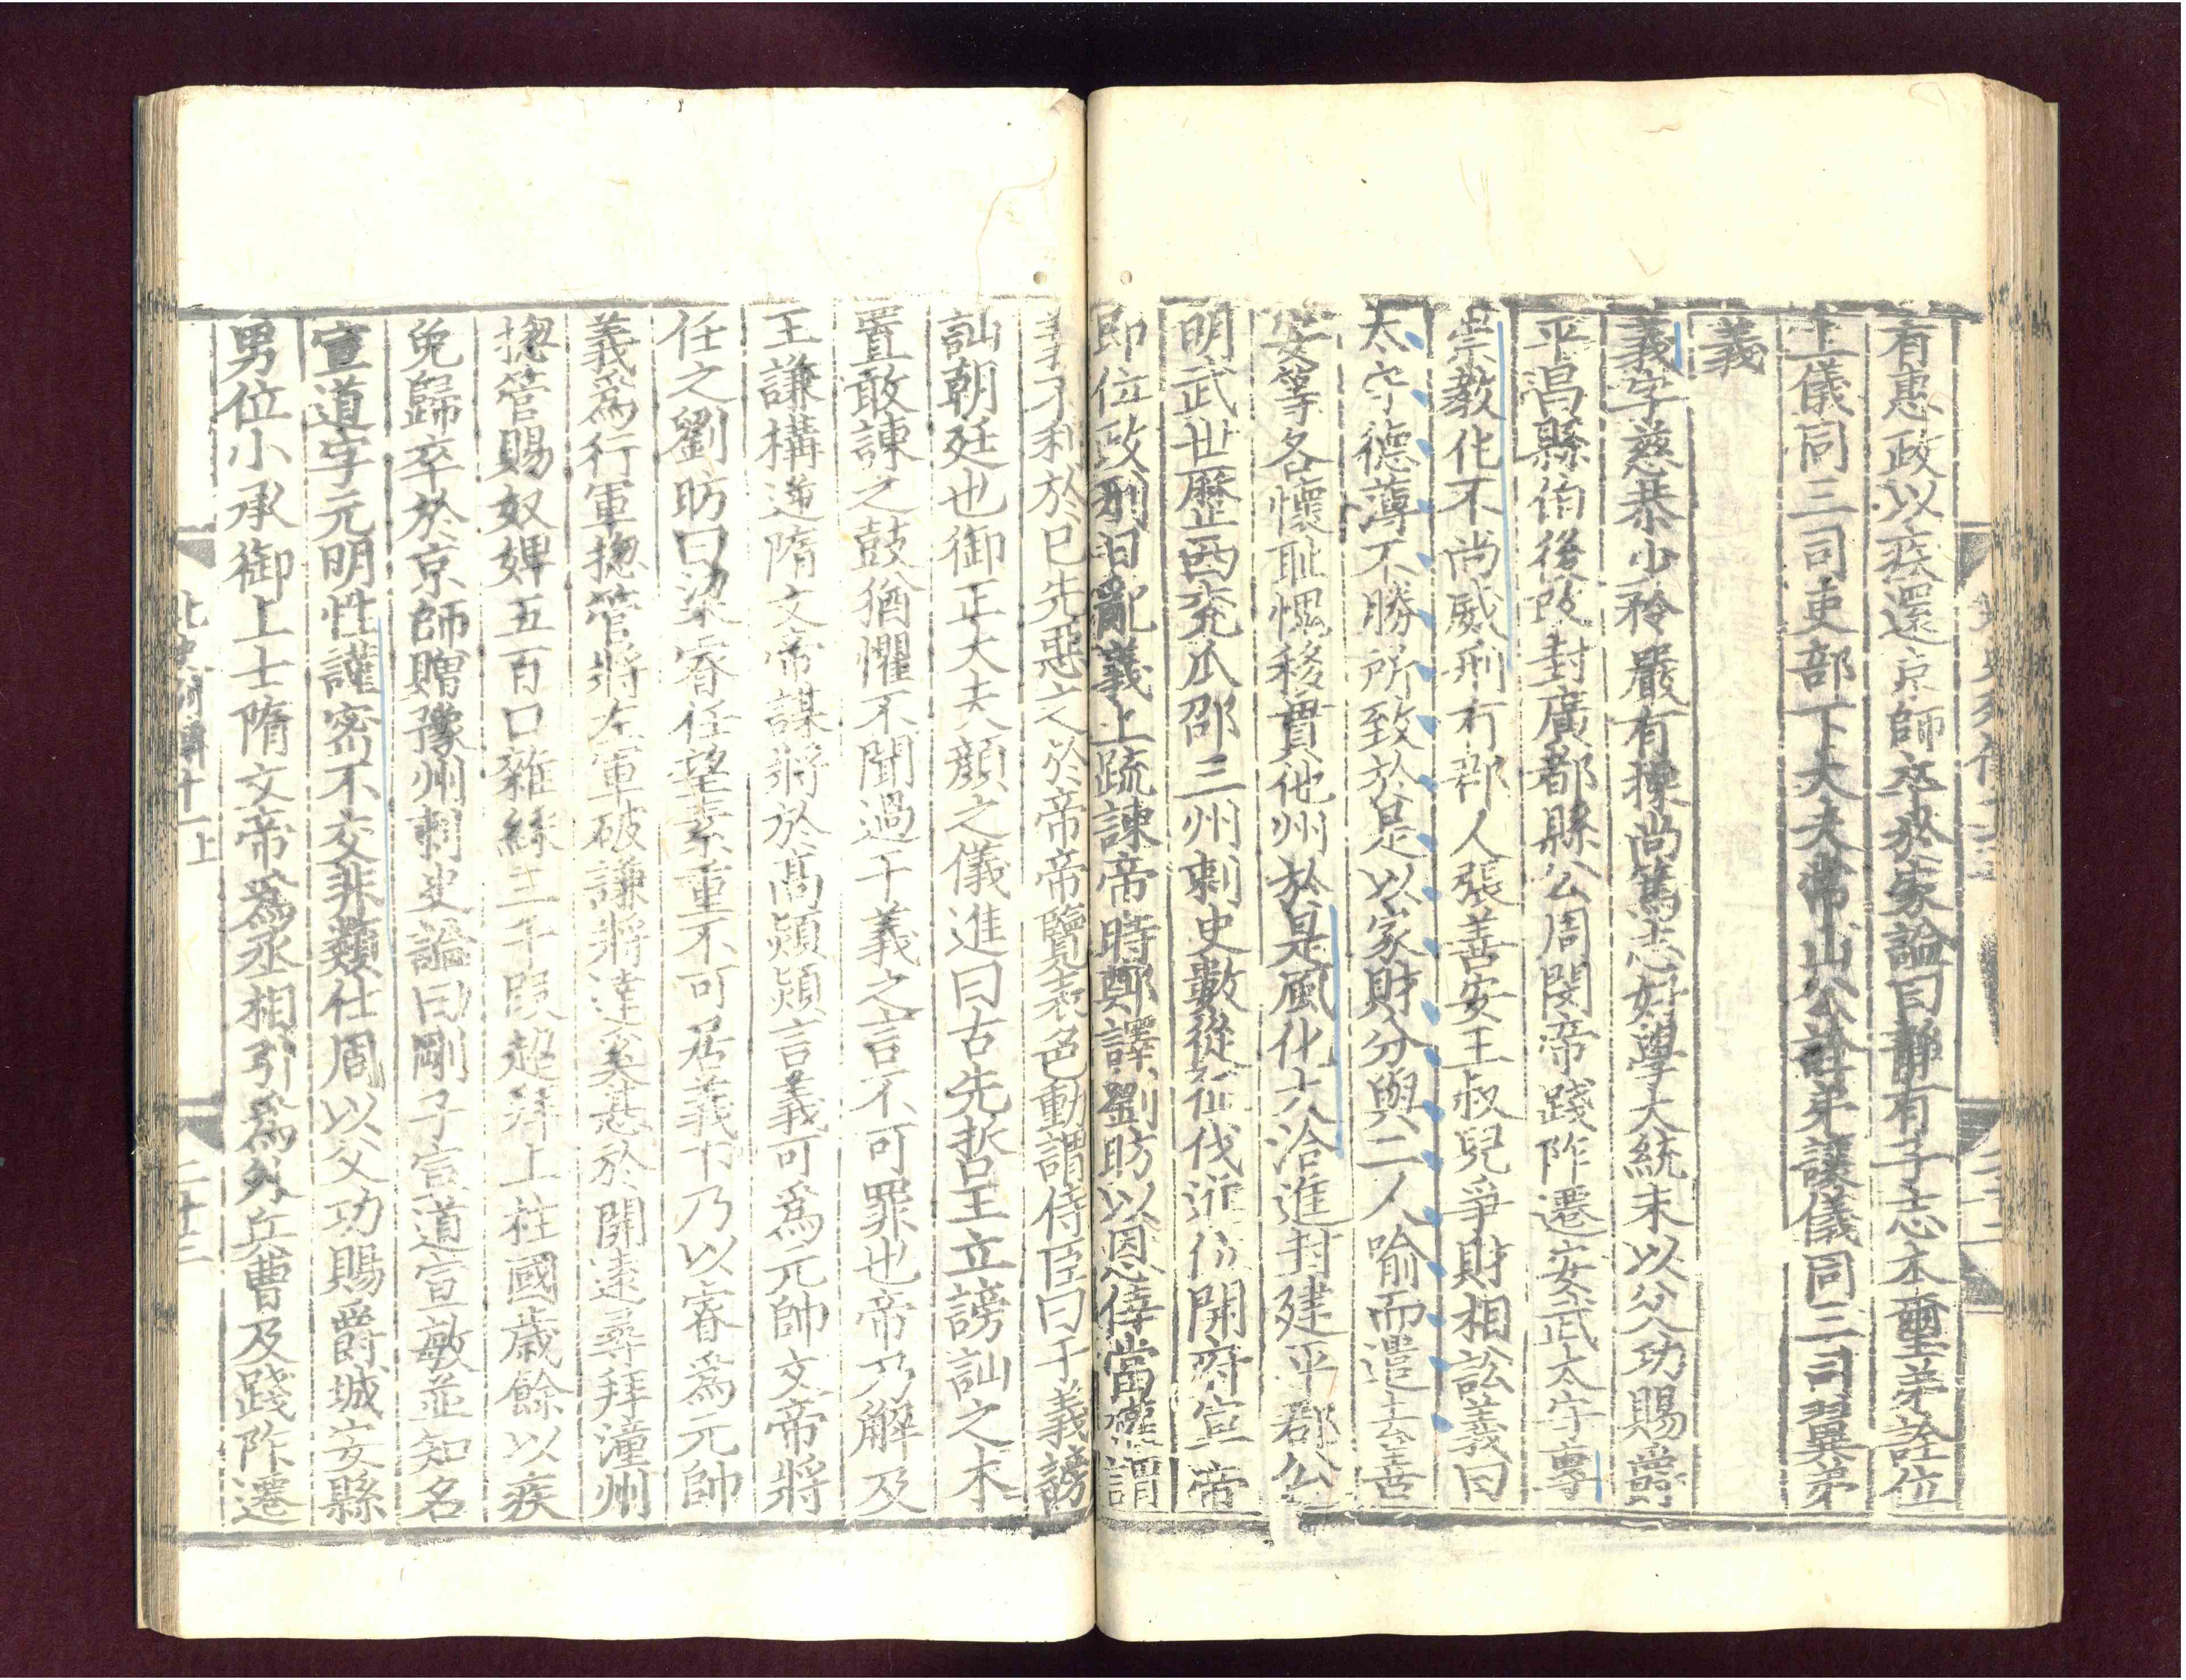 有惠政以疾還京師卒於家謚曰靜有子志本璽弟詮位
上儀同三司吏部下大夫常山公詮弟讓儀同三司翼弟
義
義字慈恭少矜嚴有操尚篤志好學大統末以父功賜爵
平昌縣伯後改封廣都縣公周閔帝踐阼遷安武太守專
崇教化不尚威刑有郡人張善安王叔兒爭財相訟義曰
太守德薄不勝所致於是以家財分與二人喻而遣去善
安等各懷恥愧移貫他州於是風化大洽進封建平郡公
明武世歷西兖瓜邵三州刺史數從征伐進位開府宣帝
即位政刑日亂義上疏諫帝時鄭譯劉昉以恩倖當權謂
義不利於已先惡之於帝帝覽表色動謂侍臣曰于義謗
訕朝廷也御正大夫顏之儀進曰古先哲王立謗訕之木
置敢諫之鼓猶懼不聞過于義之言不可罪也帝乃解及
王謙構逆隋文帝謀將於高熲熲言義可爲元帥文帝將
任之劉昉曰梁睿任望素重不可居義下乃以睿爲元帥
義爲行軍揔管將左軍破謙將達奚惎於開遠尋拜潼州
揔管賜奴婢五百口雜綵三千叚超拜上柱國歲餘以疾
免歸卒於京師贈豫州刺史謚曰剛子宣道宣敏並知名
宣道字元明性謹密不交非類仕周以父功賜爵城安縣
男位小承御上士隋文帝爲丞相引爲外兵曹及踐阼遷
北史列傳十一上
二十三